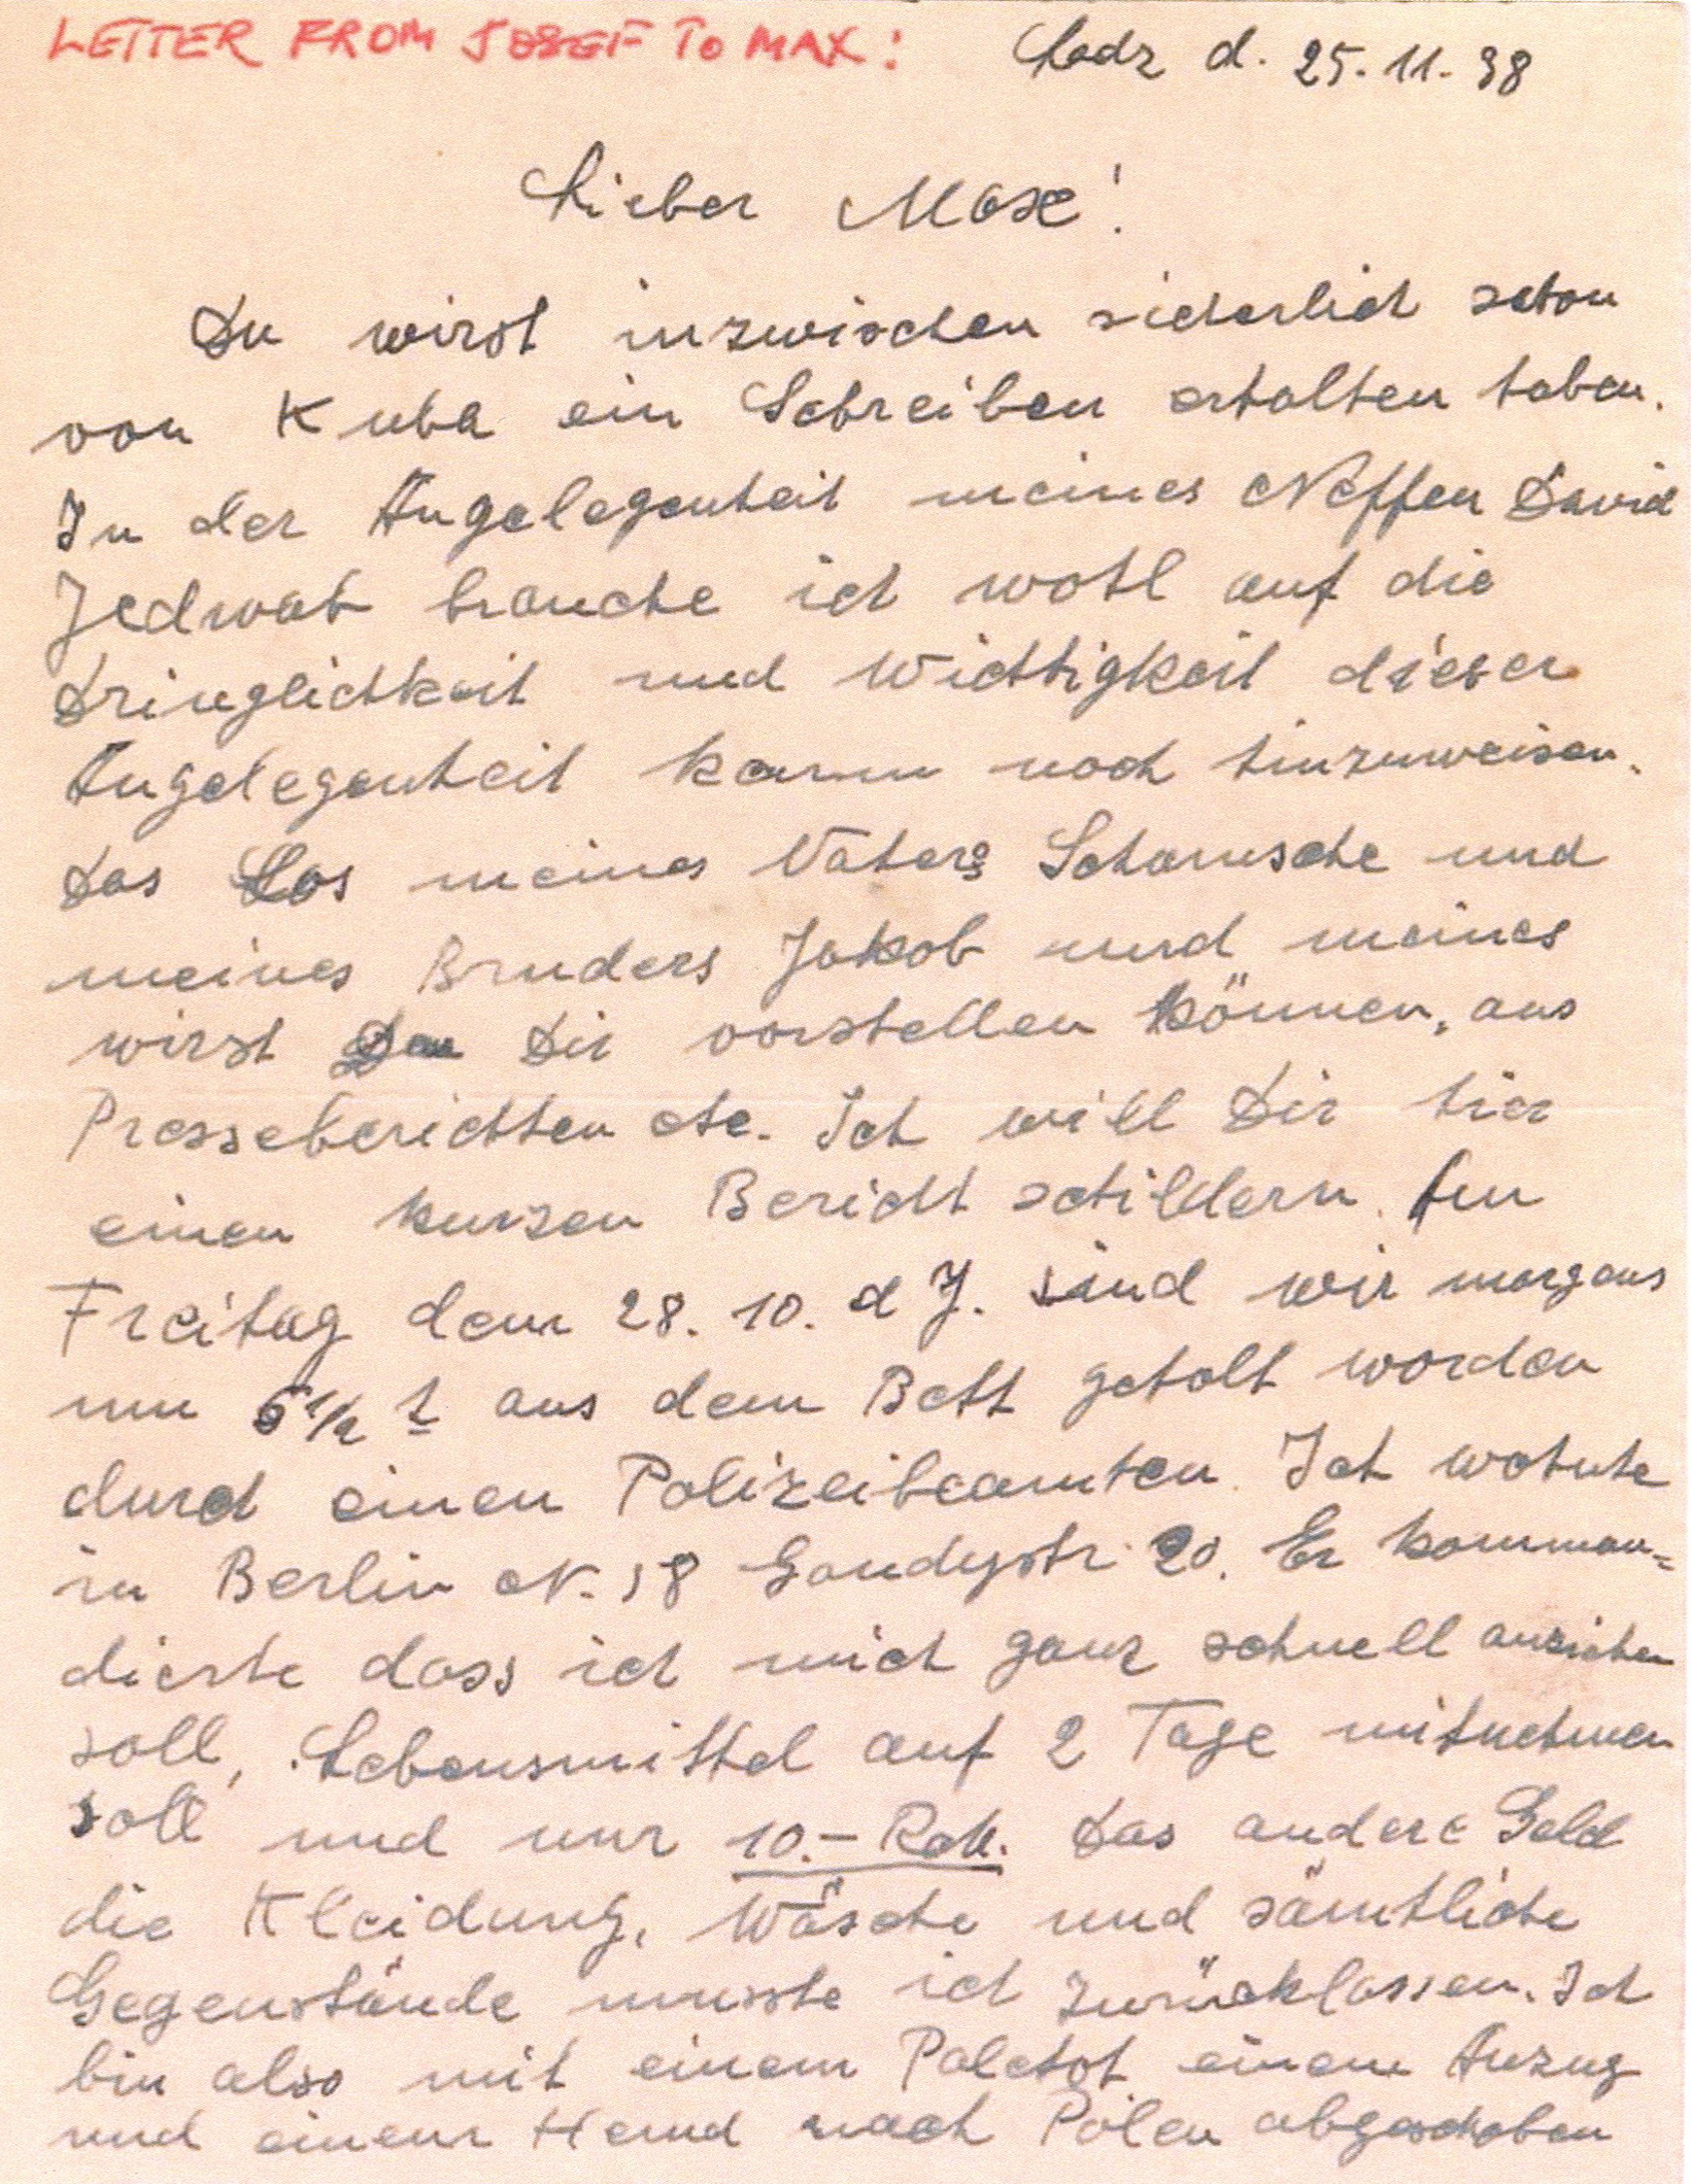 LETTER FROM JOSEF TO MAX:
Lodz d. 25.11.38
Lieber Max!
Du wirst inzwischen sicherlich schon
von Kuba ein Schreiben erhalten haben.
In der Angelegenheit meines Neffen David
Jedwab brauche ich wohl auf die
Dringlichkeit und Wichtigkeit dieser
Angelegenheit kaum noch hinzuweisen.
Das Los meines Vaters Schamsche und
meines Bruders Jakob und meines
wirst Du Dir vorstellen können, aus
Presseberichten etc. Ich will Dir hier
einen kurzen Bericht schildern. Am
Freitag dem 28.10. d J. sind wir morgens
um 6 1/2 h aus dem Bett geholt worden
durch einen Polizeibeamten. Ich wohnte
in Berlin N. 58 Gaudystr. 20. Er komman=
dierte dass ich mich ganz schnell anziehen
soll, Lebensmittel auf 2 Tage mitnehmen
soll und nur 10.– RM. Das andere Geld
die Kleidung, Wäsche und sämtliche
Gegenstände musste ich zurücklassen. Ich
bin also mit einem Paletot einem Anzug
und einem Hemd nach Polen abgeschoben